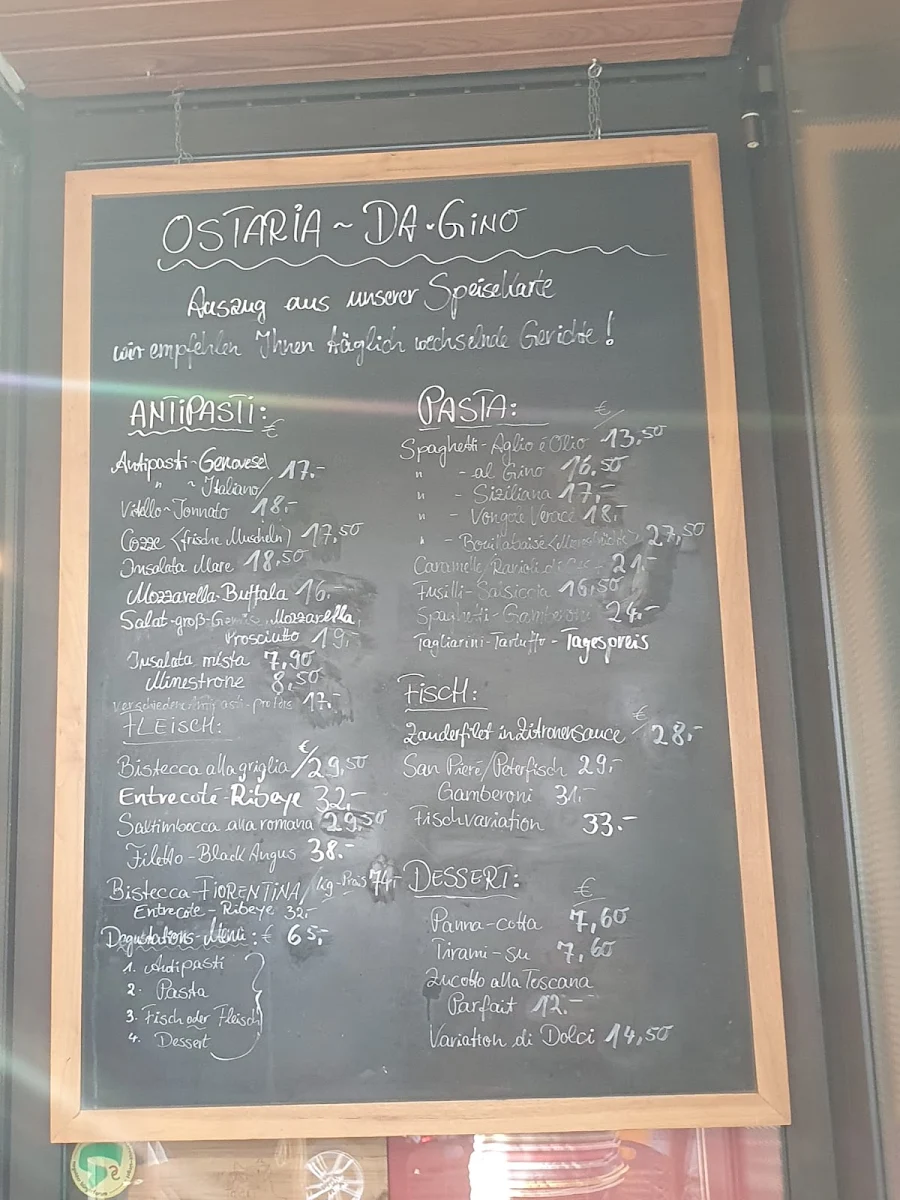 OSTARIA ~ DA·GINO
Auszug aus unserer Speisekarte
wir empfehlen Ihnen täglich wechselnde Gerichte!
ANTIPASTI:
€
Antipasti-Genovesel 17.-
" ~ Italiano/
Vitello~Tonnato 18.-
Cozze (frische Muscheln) 17,50
Insalata Mare 18,50
Mozzarella-Buffala 16.-
Salat-groß- Mozzarella,
Prosciutto 19,-
Insalata mista 7,90
Minestrone 8,50
verschiedene 17.-
FLEISCH:
Bistecca alla griglia €/29,50
Entrecote-Ribeye 32,-
Saltimbocca alla romana 29,50
Filetto-Black Angus 38.-
Bistecca-FIORENTINA/kg-Preis 74,-
Entrecote-Ribeye 32,-
Degustations-Menü: € 65,-
1. Antipasti
2. Pasta
3. Fisch oder Fleisch
4. Dessert
PASTA: €/
Spaghetti-Aglio é Olio 13,50
" -al Gino 16,50
" - Siziliana 17,-
" - Vongole Verace 18,-
" - 27,50
Caramelle/Ravioli 21,-
Fusilli-Salsiccia 16,50
Spaghetti-Gamberoni 24,-
Tagliarini-Tartuffo - Tagespreis
FISCH:
€
Zanderfilet in Zitronensauce / 28,-
San Piere/Peterfisch 29,-
Gamberoni 31,-
Fischvariation 33.-
DESSERT: €
Panna-cotta 7,60
Tirami-su 7,60
Zucotto alla Toscana
Parfait 12.-
Variation di Dolci 14,50